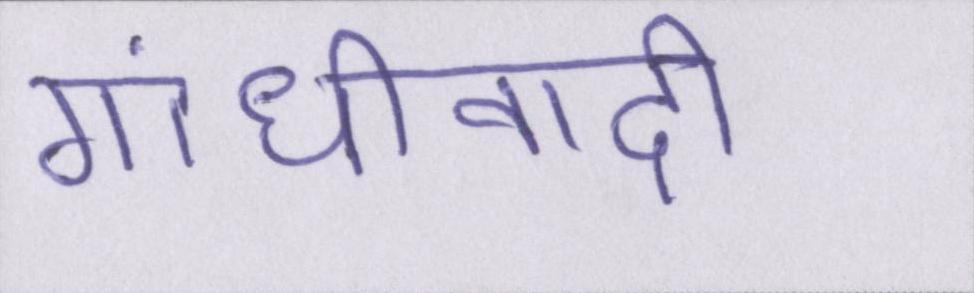 गांधीवादी